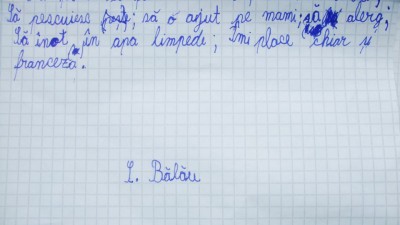 Să pescuiesc ; să o ajut pe mami; să alerg;
Să înot în apa limpede; Îmi place chiar și
franceza.
L. Bălău